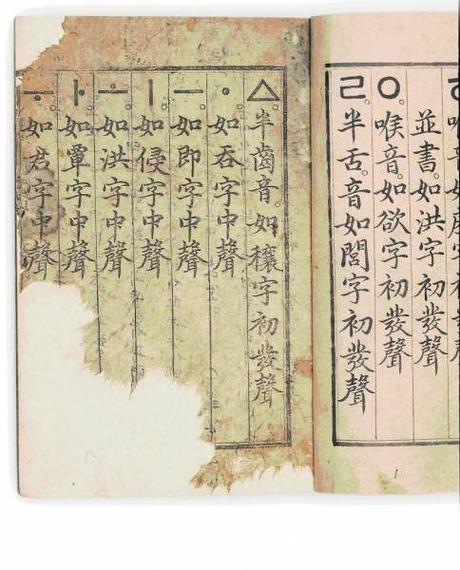 並書。如洪字初發聲
ㆁ。喉音。如欲字初發聲
ㄹ。半舌。音如閭字初發聲
ㅿ。半齒音。如穰字初發聲
ㆍ。如吞字中聲
ㅡ。如即字中聲
ㅣ。如侵字中聲
ㅗ。如洪字中聲
ㅏ。如覃字中聲
ㅜ。如君字中聲